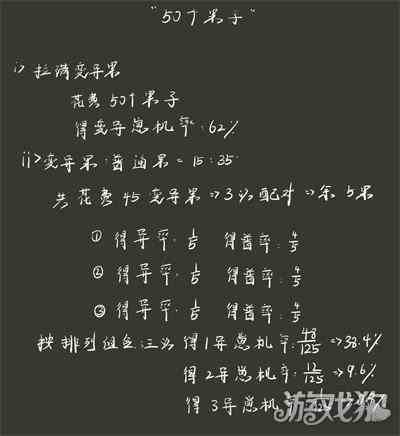 “50个果子”
i> 拉满变异果
花费50个果子
得变异总机率:62%
ii>变异果:普通果=15:35
共花费45变异果⇒3次配对⇒余5果
① 得异率:1/5 得普率:4/5
② 得异率:1/5 得普率:4/5
③ 得异率:1/5 得普率:4/5
按排列组合三次 得1异总机率:48/125⇒38.4%
得2异总机率:12/125⇒9.6%
得3异总机